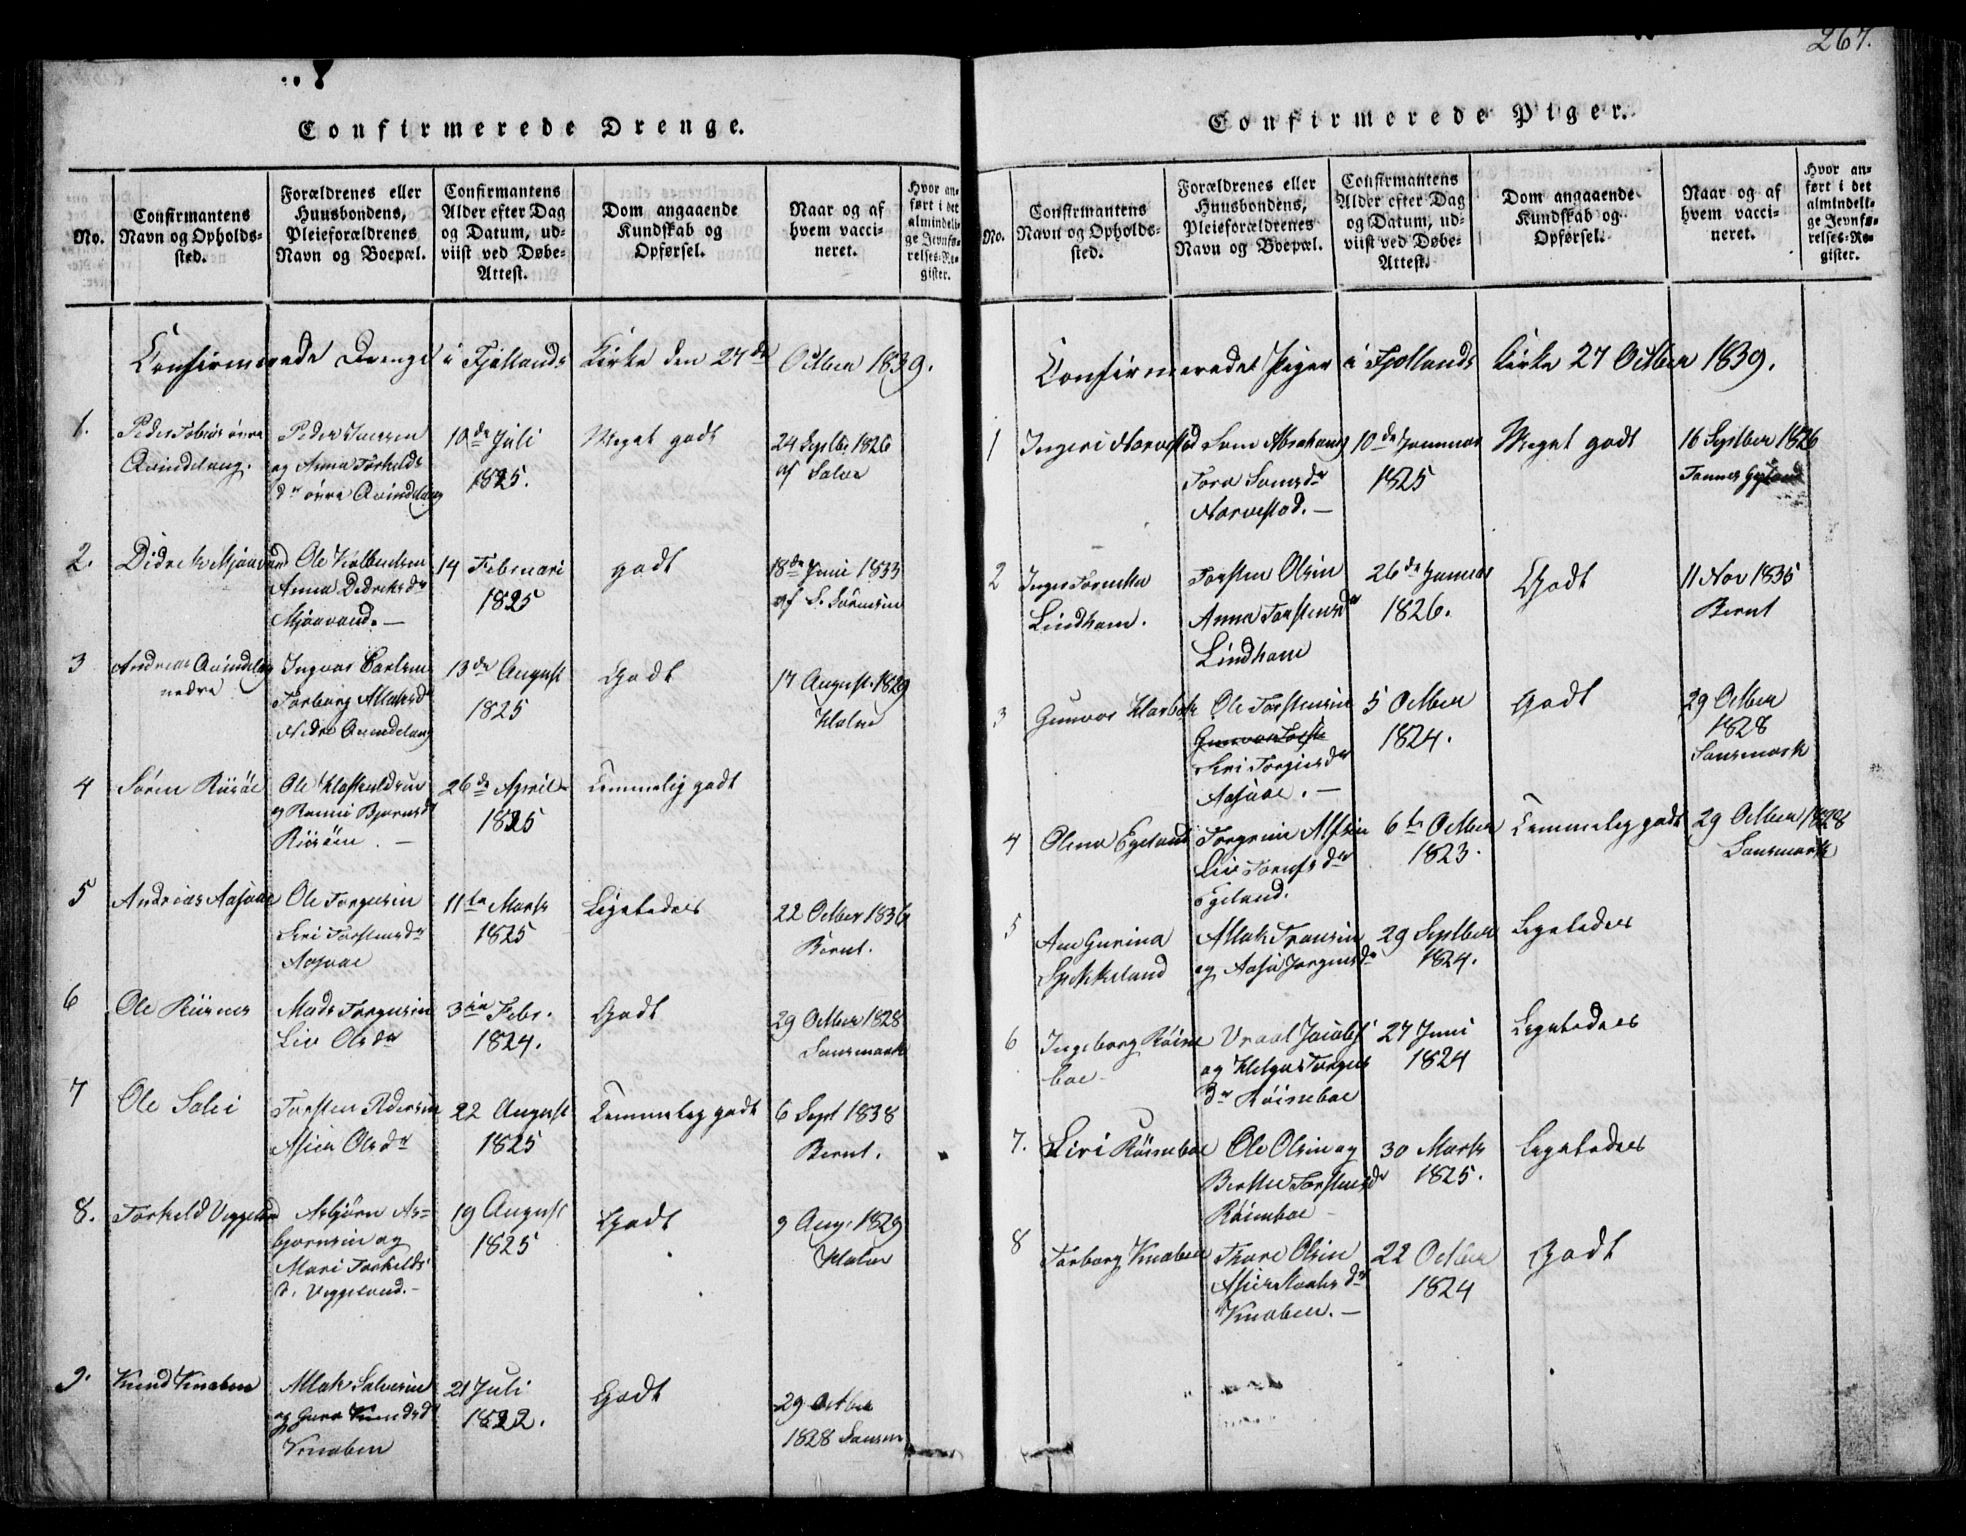 267.
Confirmerede Drenge.
No.
Confirmantens Navn og Opholds-sted.
Forældrenes eller Huusbondens, Pleieforældrenes Navn og Boepæl.
Confirmantens Alder efter Dag og Datum, ud-viist ved Døbe-Attest.
Dom angaaende Kundskab og Opførsel.
Naar og af hvem vacci-neret.
Hvor an-ført i det almindeli-ge Jevnfø-relses-Re-gister.
Confirmerede Drenge i Fjotlands Kirke den 27de Octber 1839.
1.
Peder Tobias övre
Qvindelaug.
Peder Iversen
og Anna Torkelds
dr övre Qvindelaug
10de Juli
1825.
Meget godt
24 Septbr 1826
af Salve
2.
Didrik Mjaavand
Ole Kolbendsen
Anna Didriksdr
Mjaavand. —
14 Februari
1825
godt
18de Juni 1833
af S. Sörensen
3
Andreas Qvindelaug
nedre
Ingvar Carlsen
Torborg Allaksdr
Nedre Qvindelaug
13de August
1825
Godt
17 August 1829
4
Sören Riisöe
Ole
og Bjørnsdr
26de April
1825
Temmelig godt
5
Andreas Aasaae
Ole Torgiersen
Siri Torstensdr
Aasaae
11te Marts
1825
Ligeledes
22 Octber 1836
Bernt.
6
Ole Riisnes
Mads Torgiersen
Liv Olsdr
3die Febr.
1824.
Godt
29 Octber 1828
Sansmark
7
Ole Salei
Torsten Pedersen
Asier Olsdr
22 August
1825
Temmelig godt
6 Sept 1838
Bernt.
8.
Torkeld Veggeland
Asbjørn As=
bjornsen og
Mari Torkelds
d. Veggeland. —
19 August
1825
Godt
9 Aug. 1829
9.
Knud Knaben
Allak Salvesen
og Guro Knudsdr
Knaben
21 Juli
1822.
Godt
29 Octber
1828 Sansm
Confirmerede Piger.
No.
Confirmantens Navn og Opholds-sted.
Forældrenes eller Huusbondens, Pleieforældrenes Navn og Boepæl.
Confirmantens Alder efter Dag og Datum, ud-viist ved Døbe-Attest.
Dom angaaende Kundskab og Opførsel.
Naar og af hvem vacci-neret.
Hvor an-ført i det almindeli-ge Jevnfø-relses-Re-gister.
Confirmerede Piger i Fjotlands Kirke 27 Octber 1839.
1
Ingeri Narvestad
Som Abrahams
Tora Somsdr
Narvestad. —
10de Januar
1825
Meget godt
16 Septber 1826
2
Lindham.
Torsten Olsen
Anna Torstensdr
Lindham
26de Januar
1826.
Godt
11 Nov 1835
Bernt
3
Gunvor
Ole Torstensen
Siri Torgiersdr
Aasaae. —
5 Octber
1824.
Godt
29 Octber
1828
Sansmark
4
Olena Egeland
Torgrim Alfsen
Liv
Egeland.
6te Octber
1823.
Temmelig godt
29 Octber 1828
Sansmark
5
Ane Gurina
Spikkeland
Allak Tronsen
og Aasa Jörgensdr
29 Septber
1824.
Ligeledes
6
Ingeborg Röisne
boe
Vraal Jacobs
og Helga Torgiers
Dr Röisneboe
27 Juni
1824
Ligeledes
7.
Siri Röisneboe
Ole Olsen og
Berthe Torstensdr
Röisneboe —
30 Marts
1825.
Ligeledes
8
Torborg Knaben
Thore Olsen
Knaben. —
22 Octber
1824
Godt